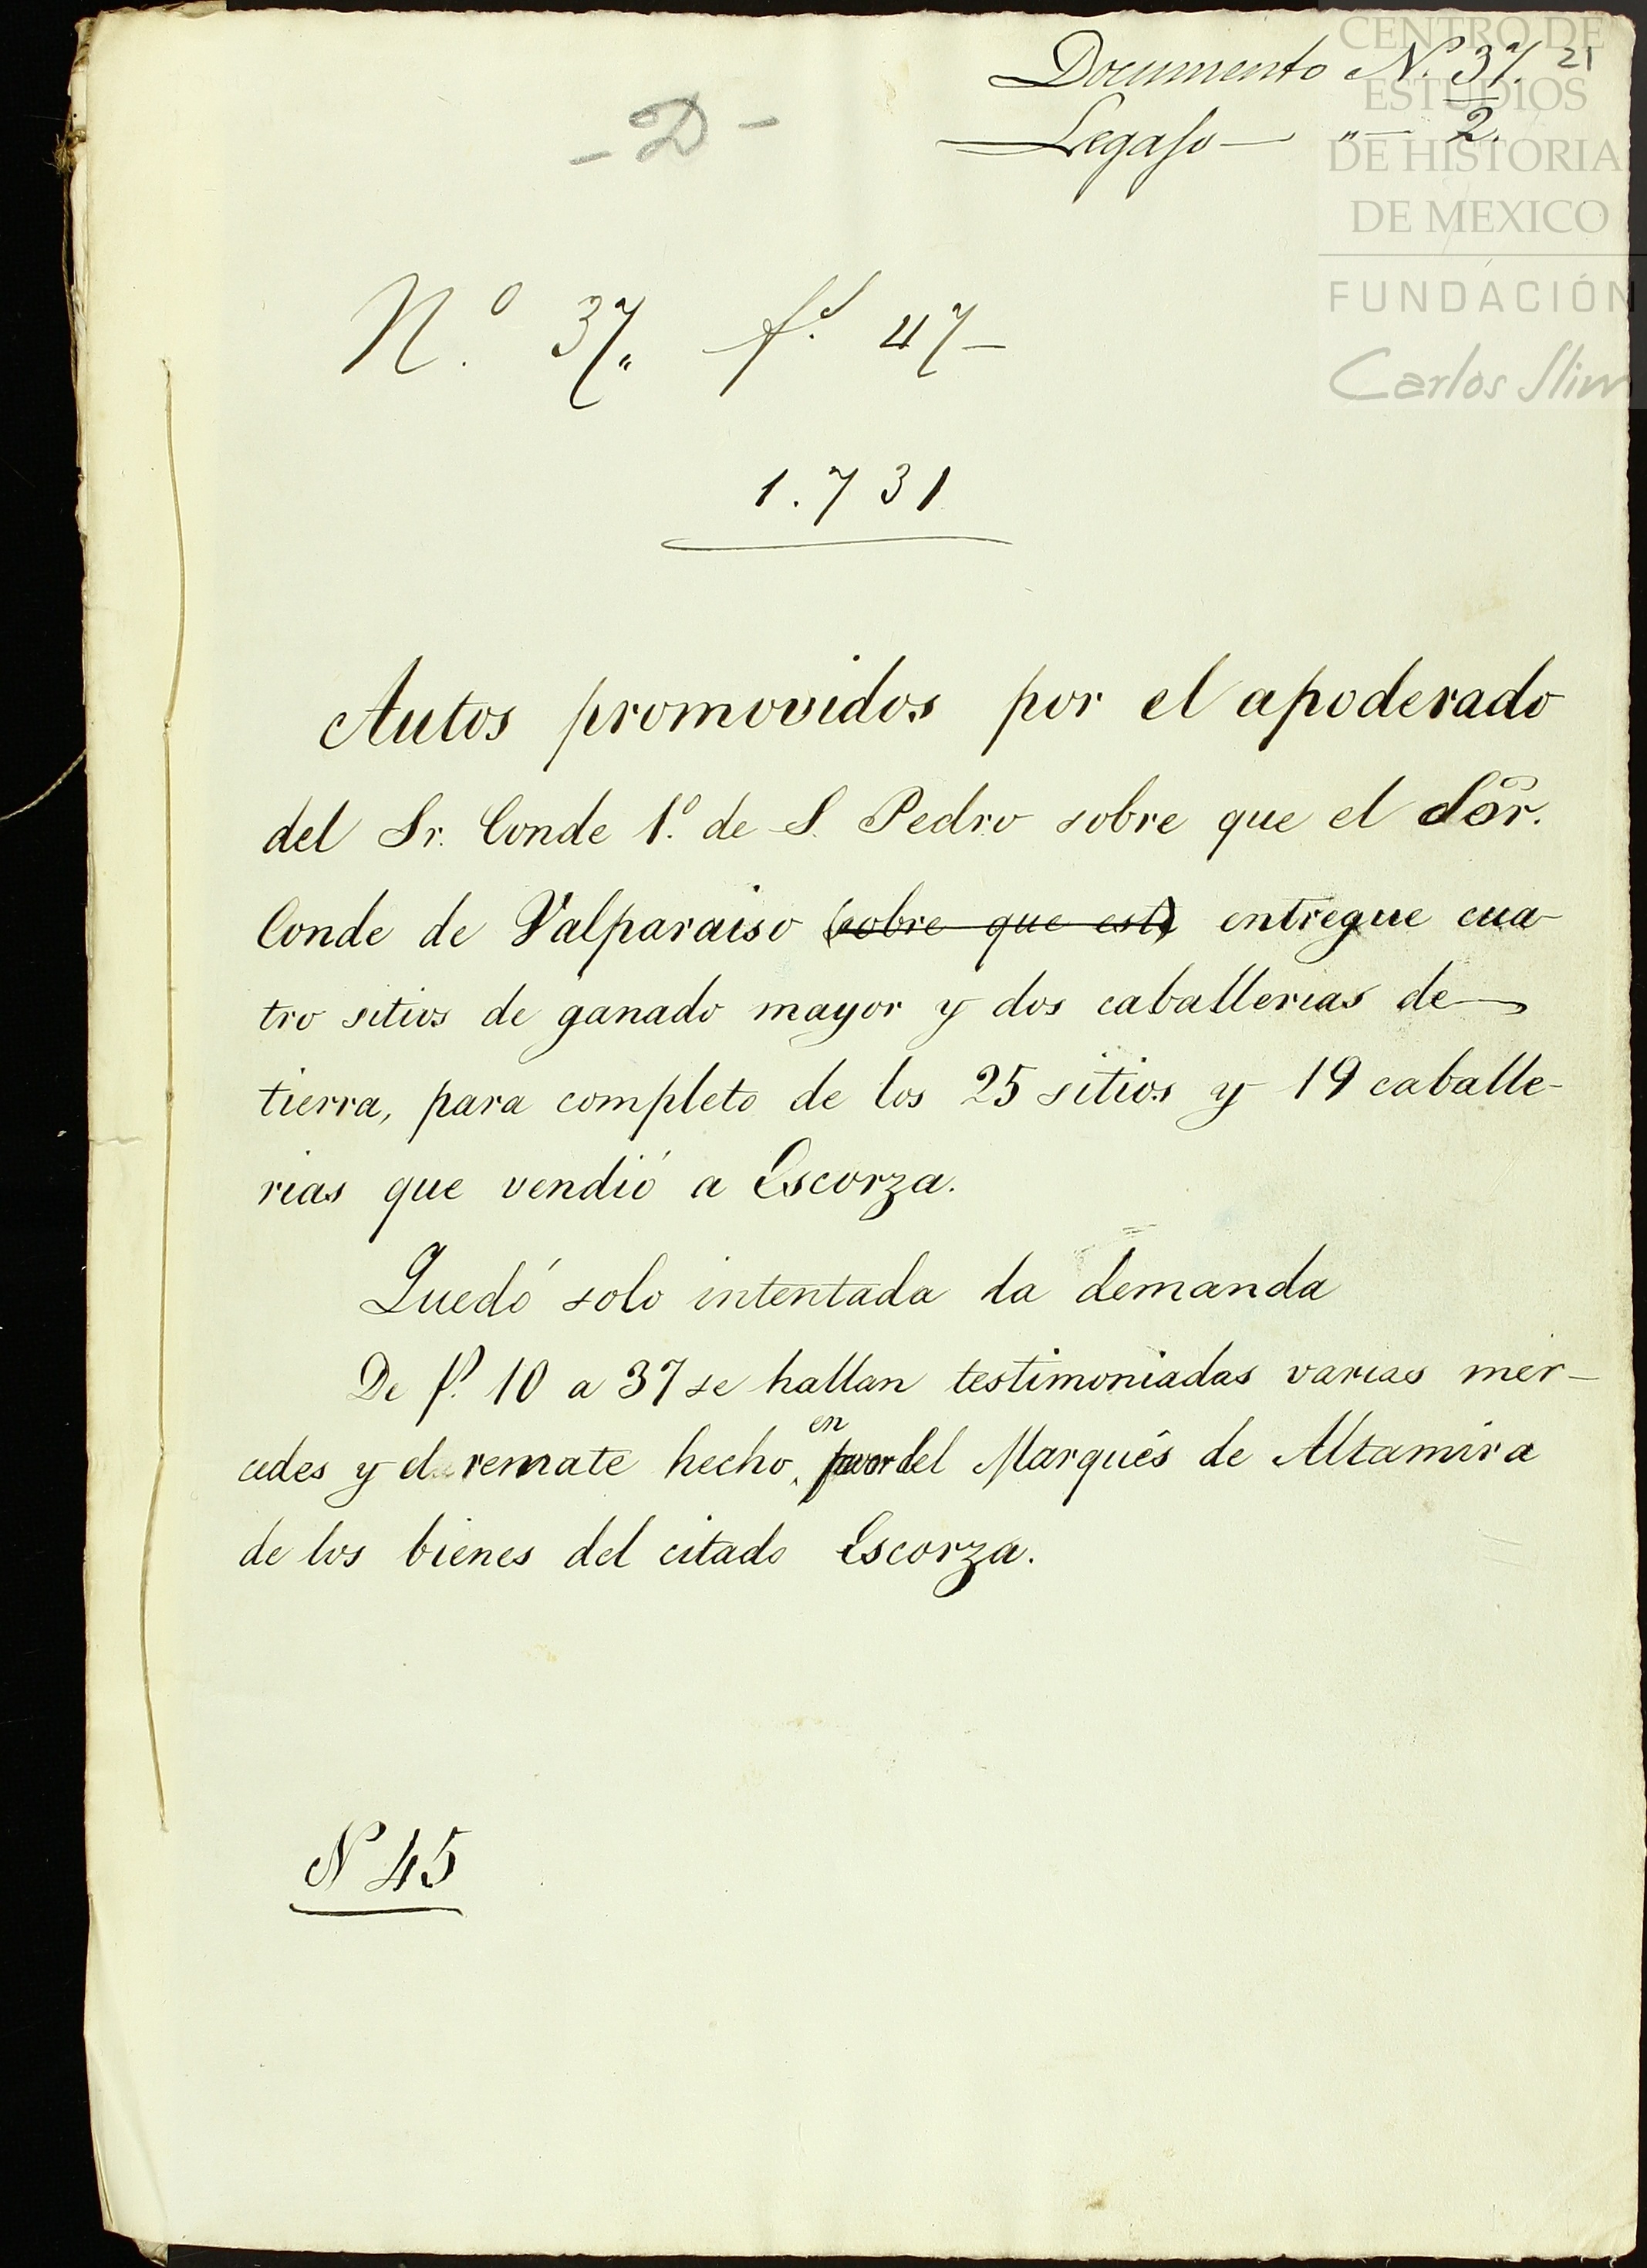 Documento N.º 37. 21
Legajo — " — 2.
- D -
N.º 37" f.s 47 —
1.731
Autos promovidos por el apoderado
del Sr. Conde 1.º de S. Pedro sobre que el Sõr.
Conde de Valparaiso (sobre que este) entregue cua-
tro sitios de ganado mayor y dos caballerias de
tierra, para completo de los 25 sitios y 19 caballe-
rias que vendió a Escorza.
Quedó solo intentada la demanda
De f.s 10 a 37 se hallan testimoniadas varias mer-
cedes y el remate hecho en favor del Marqués de Altamira
de los bienes del citado Escorza.
N 45
CENTRO DE
ESTUDIOS
DE HISTORIA
DE MEXICO
FUNDACIÓN
Carlos Slim